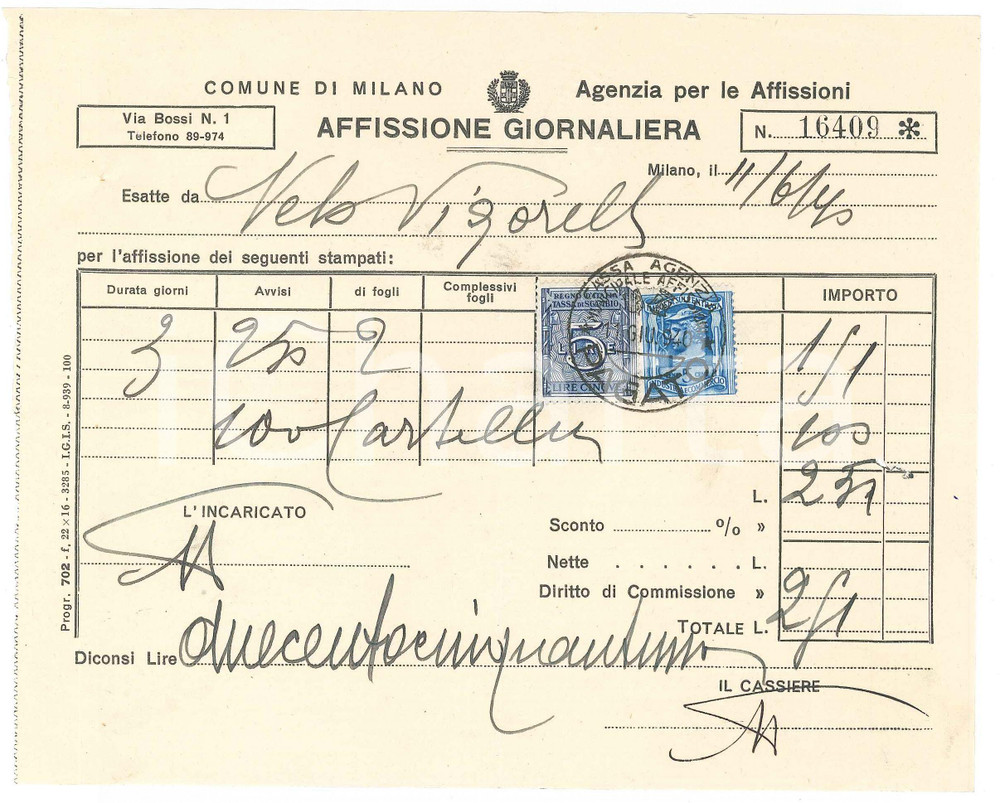 COMUNE DI MILANO Agenzia per le Affissioni
Via Bossi N. 1
Telefono 89-974
AFFISSIONE GIORNALIERA
N. 16409 *
Milano, il 11/6/40
Esatte da Velo Vigorelli
per l'affissione dei seguenti stampati:
Durata giorni Avvisi di fogli Complessivi fogli IMPORTO
REGNO D'ITALIA
TASSA DI SCAMBIO
L. 5
LIRE CINQUE
CASSA AGENZIA
PAGATO
3 250 2 151
100 Cartelli 100
L. 251
L'INCARICATO
Sconto % »
Nette L.
Diritto di Commissione »
TOTALE L. 251
Diconsi Lire duecentocinquantuno
IL CASSIERE
Progr. 702 - f. 22×16 - 3285 - I.G.I.S. - 8-939 - 100